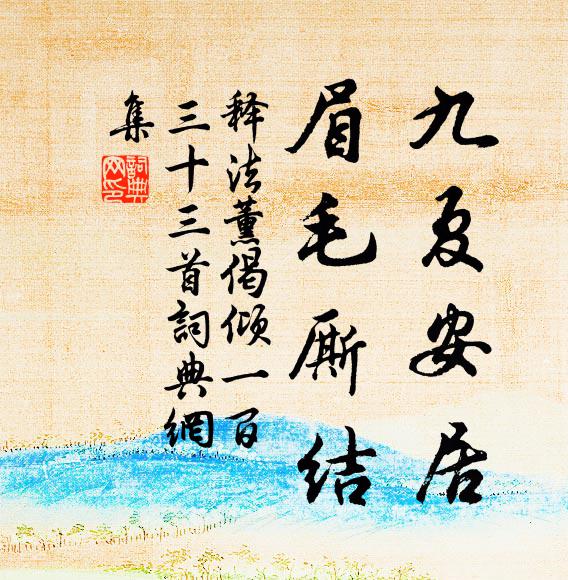 九夏安居
眉毛厮结
释法薰偈倾一百
三十三首詞典網
集
詞典
网印